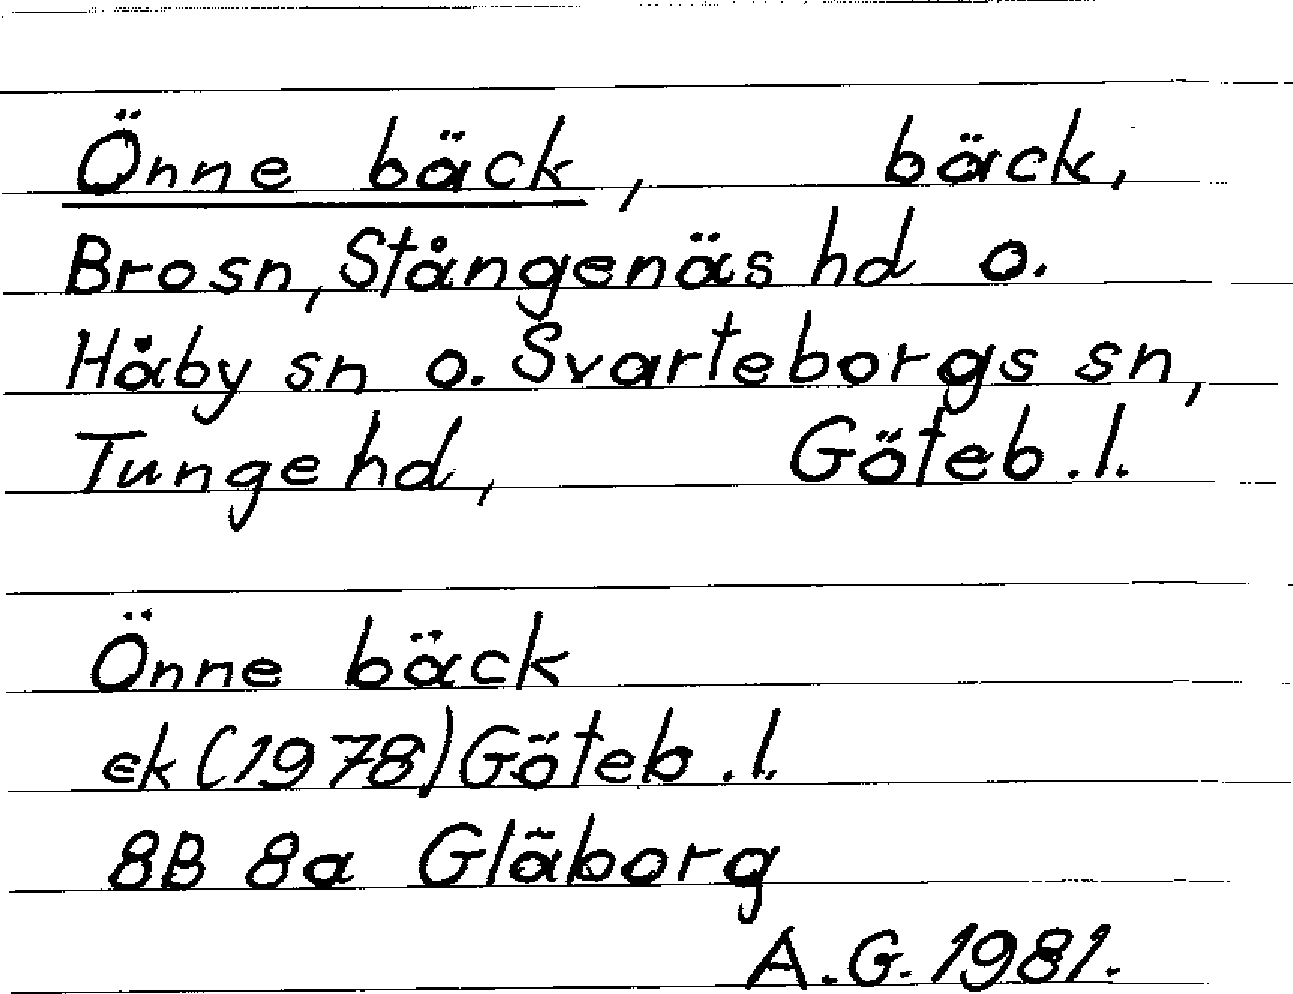 Önne bäck, bäck,
Bro sn, Stångenäs hd o.
Håby sn o. Svarteborgs sn,
Tunge hd, Göteb. l.
Önne bäck
ek (1978) Göteb. l.
8B 8a Gläborg
A.G. 1981.